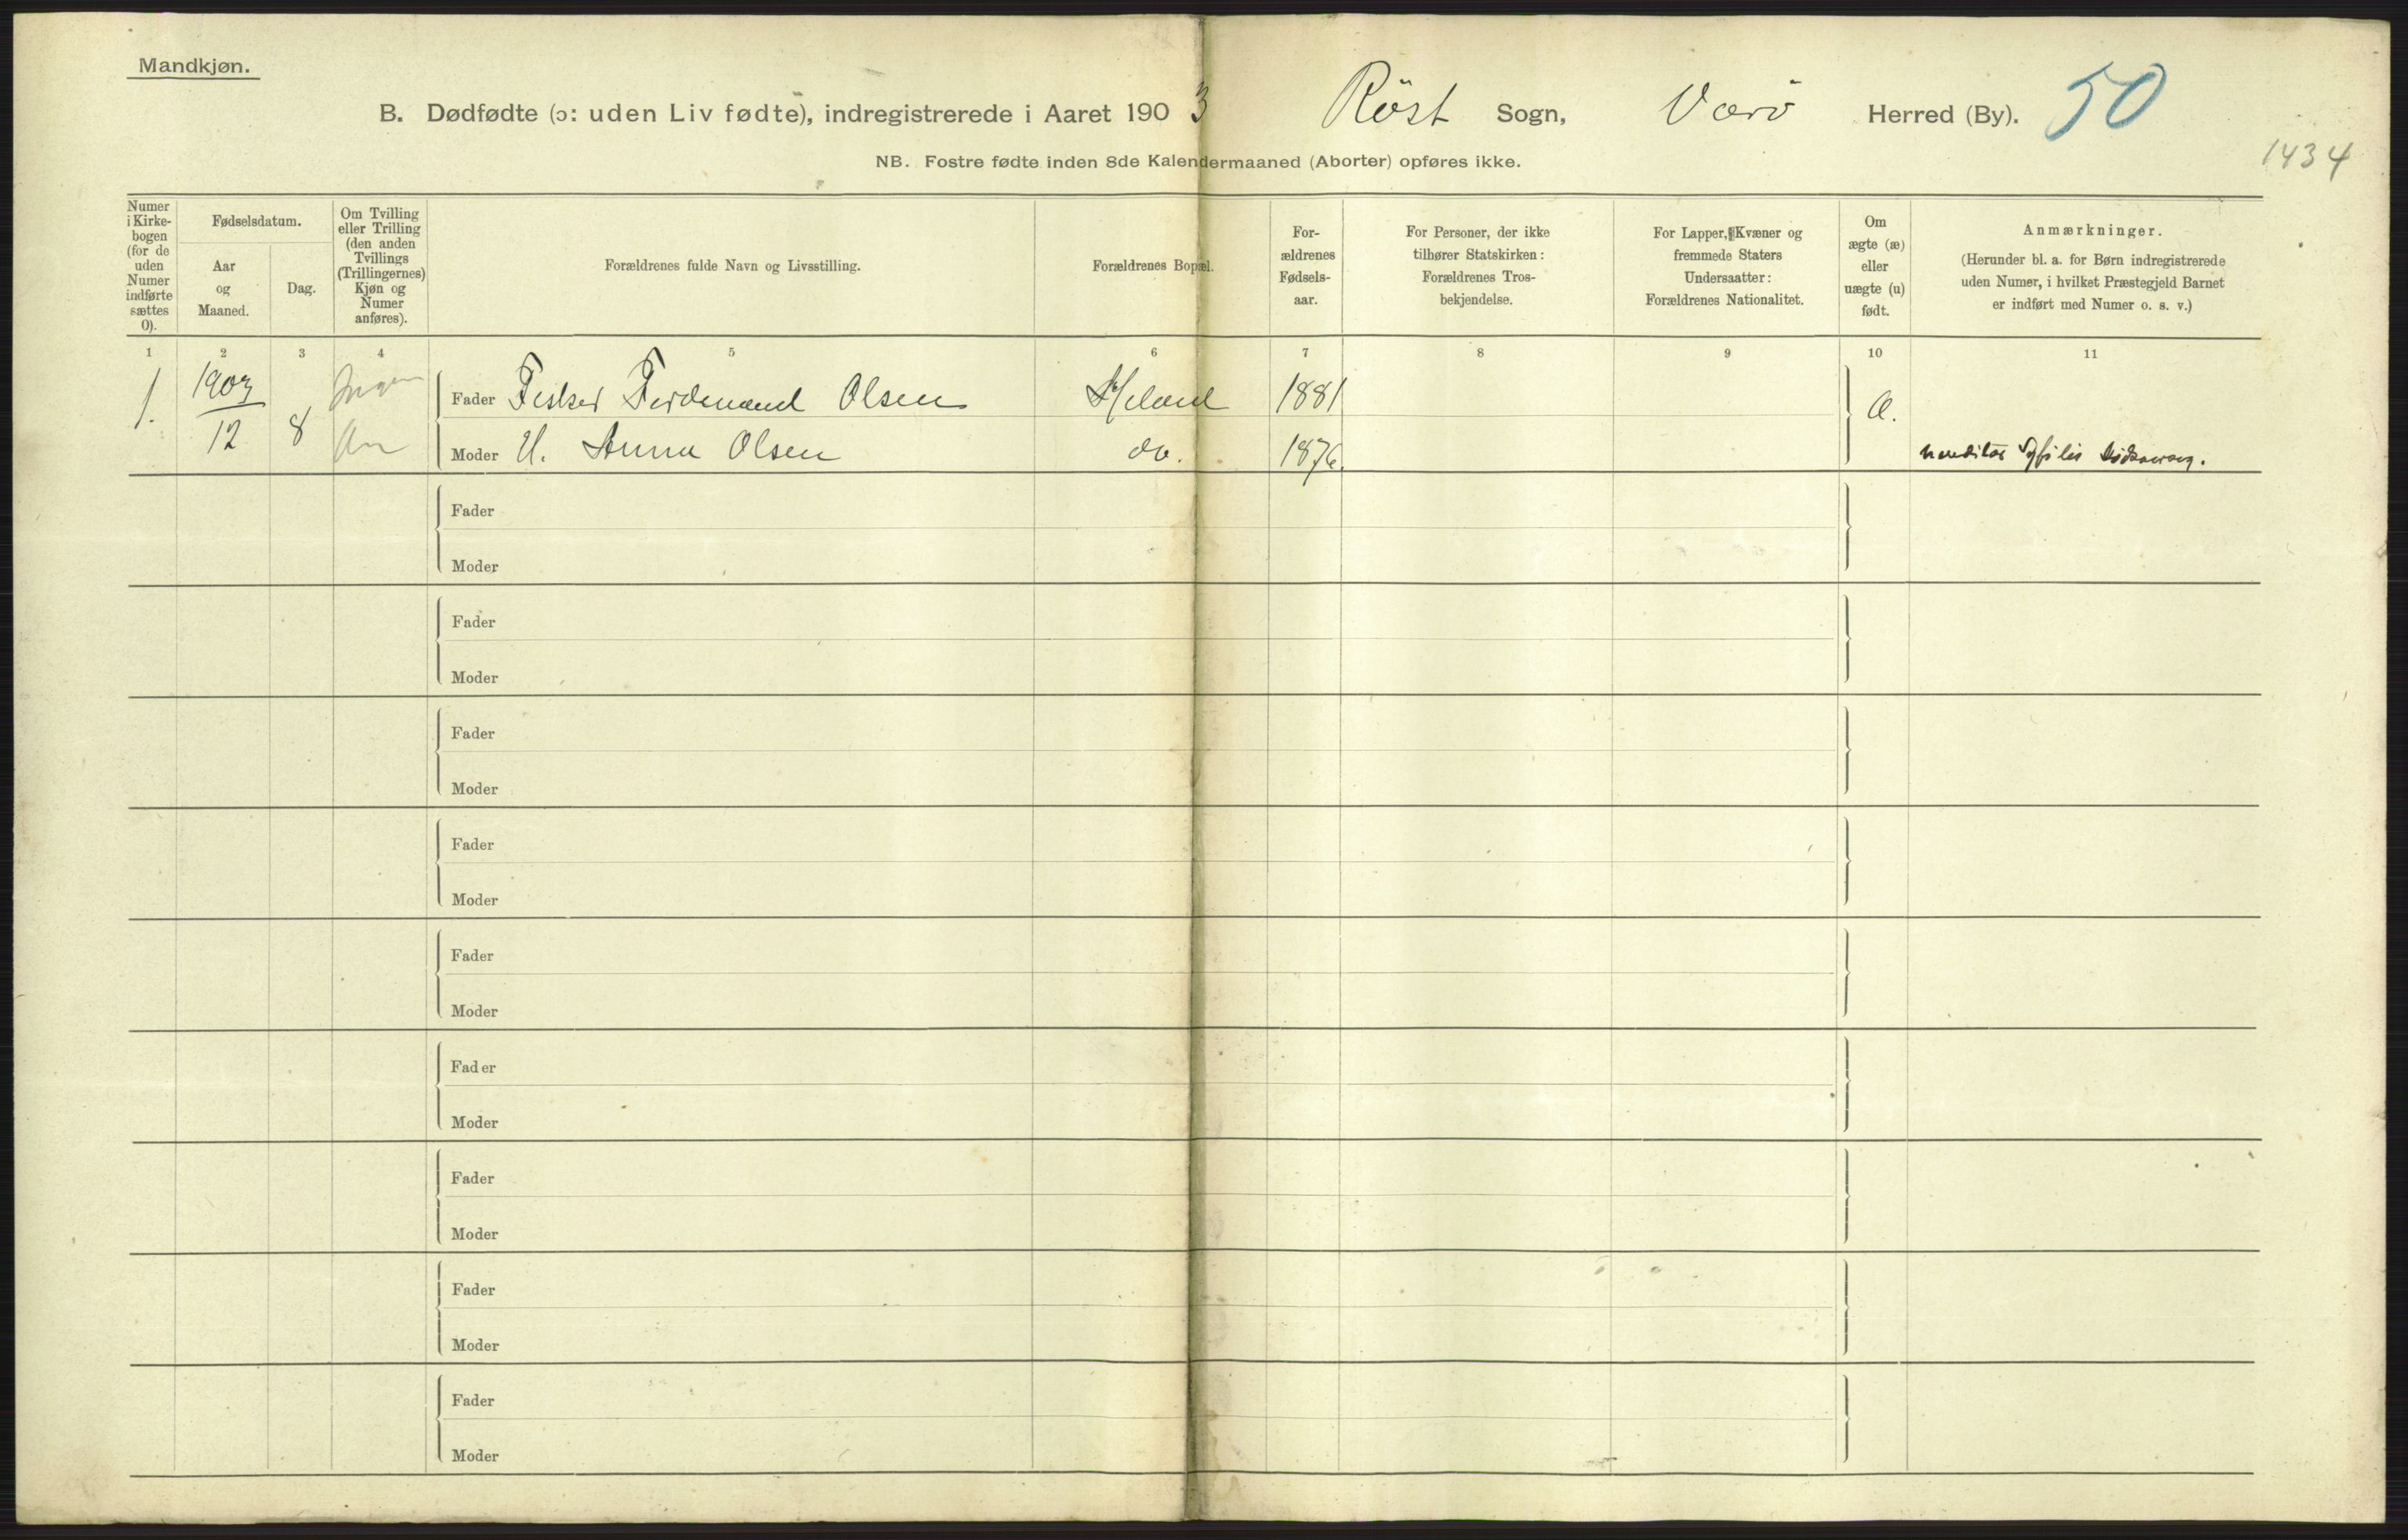 Mandkjøn.
B. Dødfødte (ɔ: uden Liv fødte), indregistrerede i Aaret 1903 Röst Sogn, Værö Herred (By). 50
1434
NB. Fostre fødte inden 8de Kalendermaaned (Aborter) opføres ikke.
Numer
i Kirke-
bogen
(for de
uden
Numer
indførte
sættes
0).
Fødselsdatum.
Aar
og
Maaned.
Dag.
Om Tvilling
eller Trilling
(den anden
Tvillings
(Trillingernes)
Kjøn og
Numer
anføres).
Forældrenes fulde Navn og Livsstilling.
Forældrenes Bopæl.
For-
ældrenes
Fødsels-
aar.
For Personer, der ikke
tilhører Statskirken:
Forældrenes Tros-
bekjendelse.
For Lapper, Kvæner og
fremmede Staters
Undersaatter:
Forældrenes Nationalitet.
Om
ægte (æ)
eller
uægte (u)
født.
Anmærkninger.
(Herunder bl. a. for Børn indregistrerede
uden Numer, i hvilket Præstegjeld Barnet
er indført med Numer o. s. v.)
1 2 3 4 5 6 7 8 9 10 11
1. 1903 Fader Fisker Ferdinand Olsen 1881 Æ.
12 8 Moder H. Anna Olsen do. 1876.
Syfilis
Fader
Moder
Fader
Moder
Fader
Moder
Fader
Moder
Fader
Moder
Fader
Moder
Fader
Moder
Fader
Moder
Fader
Moder